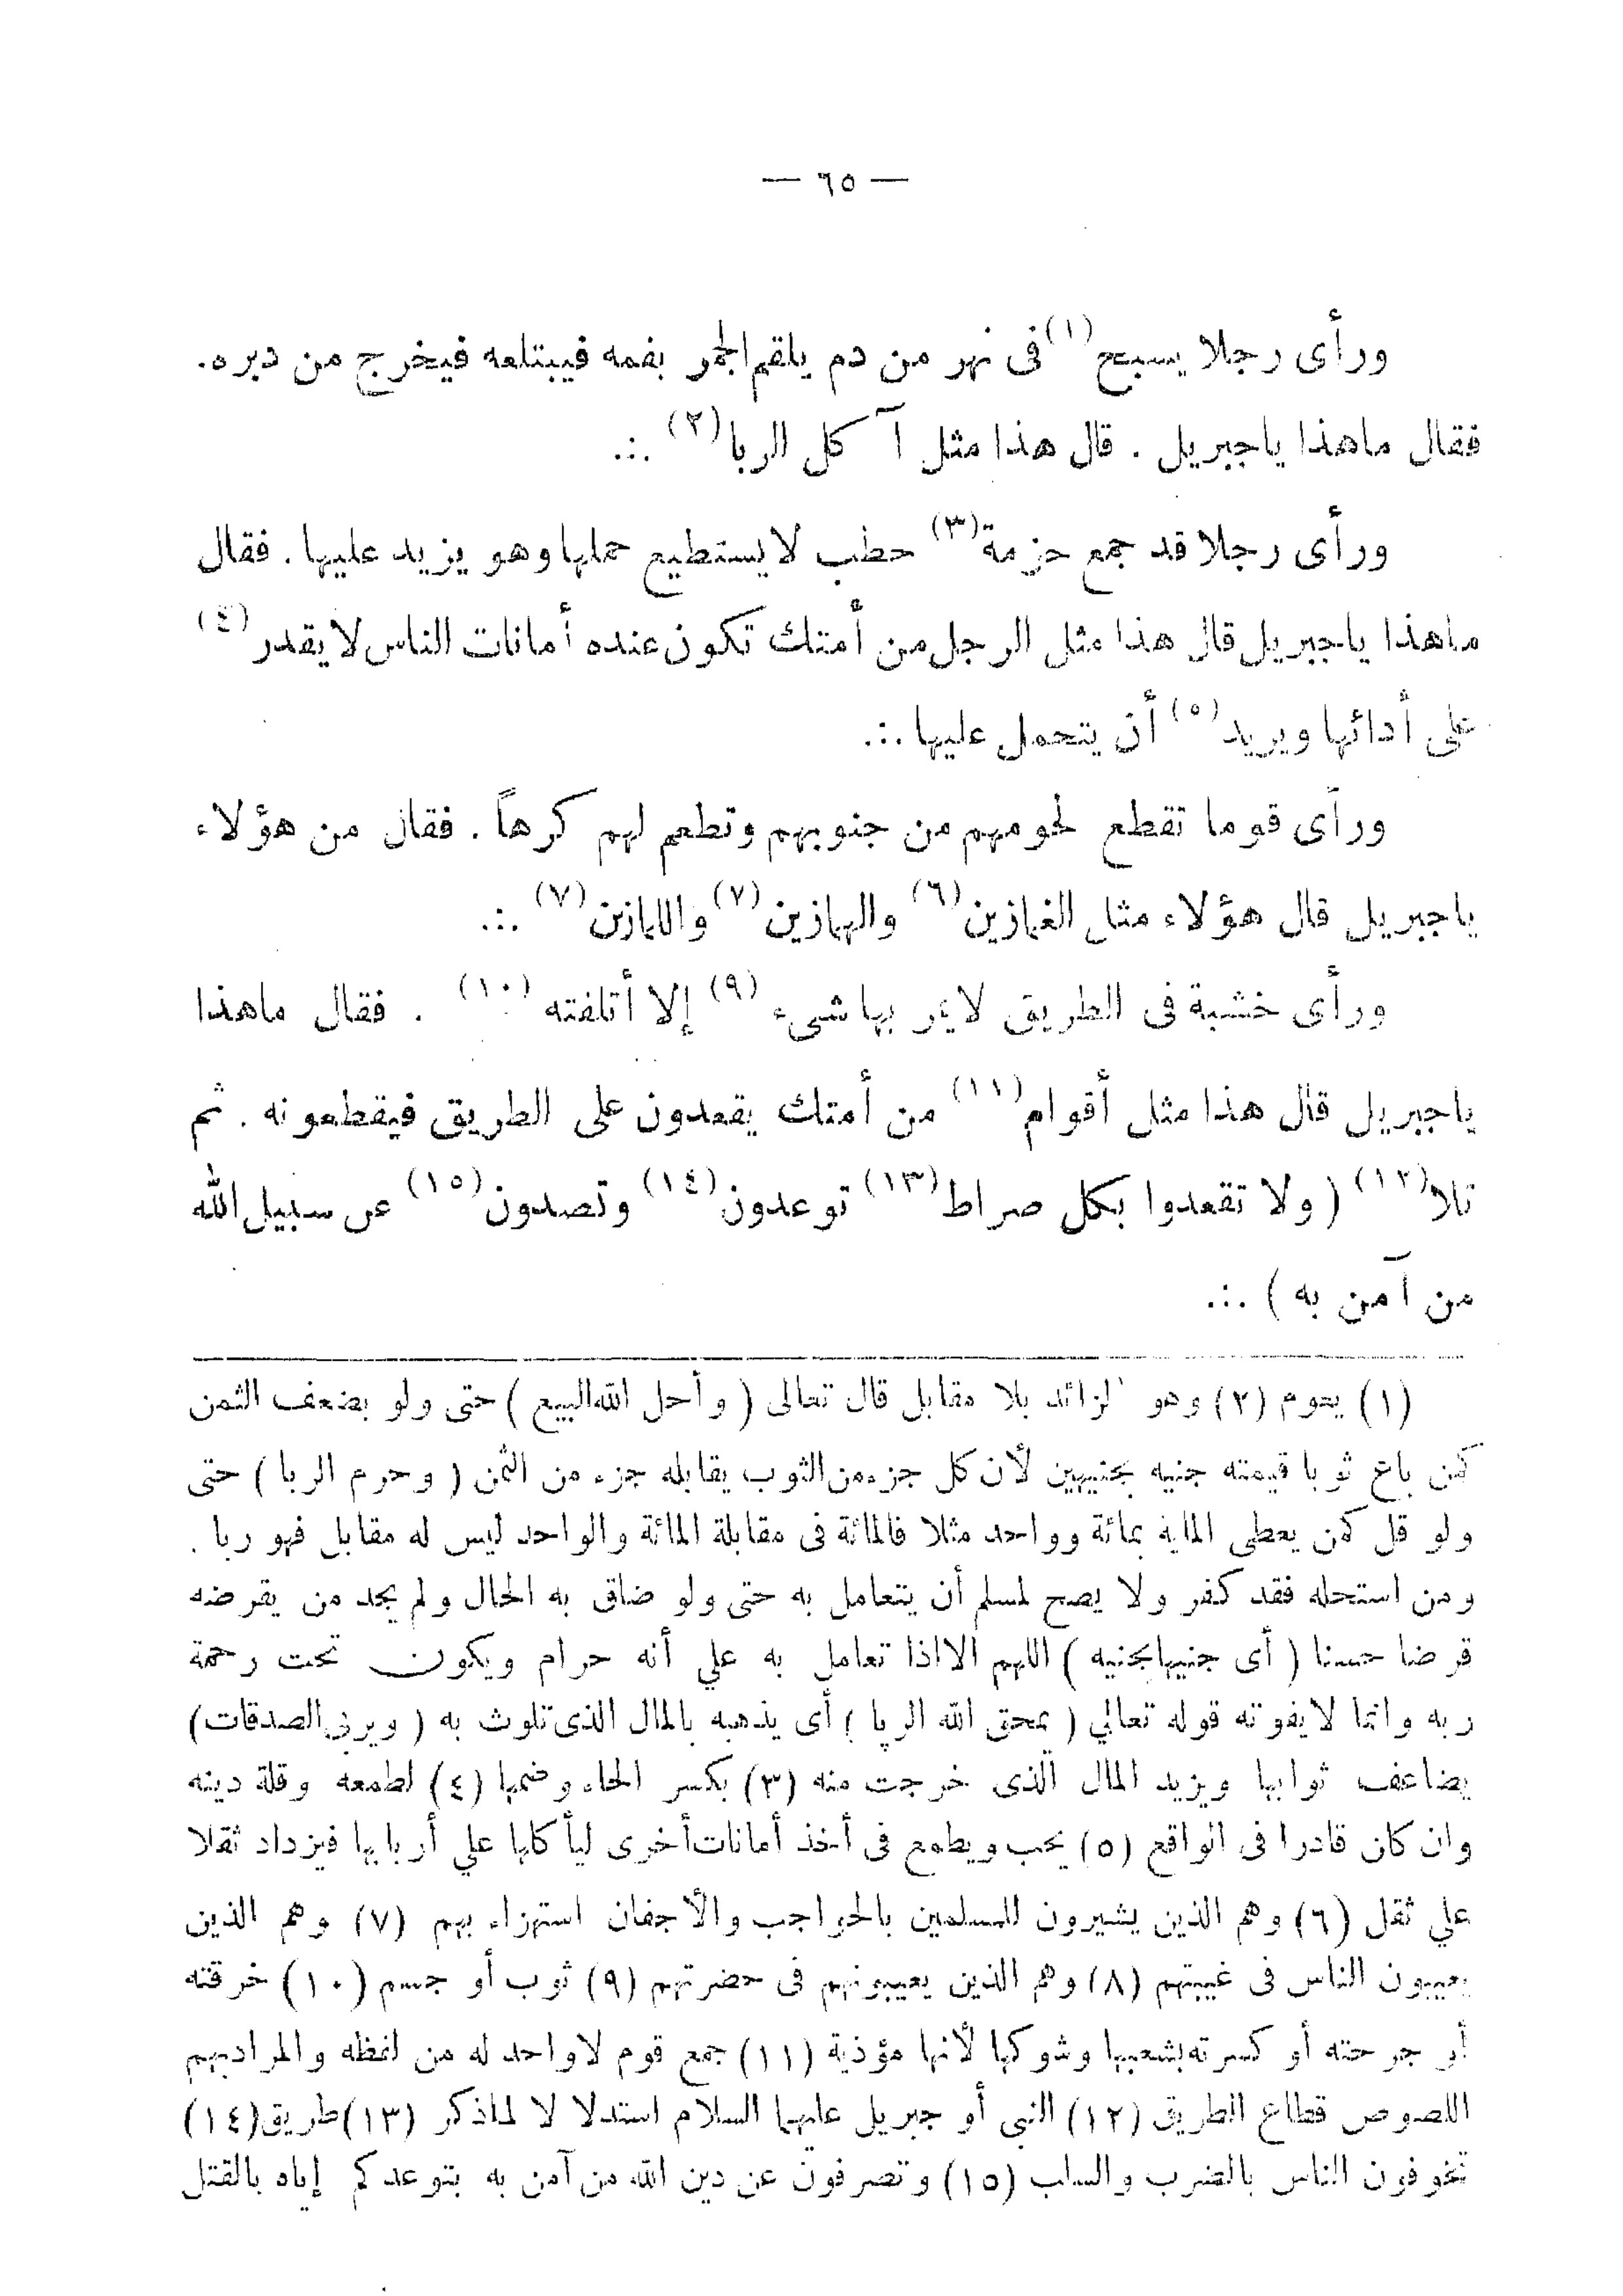 — ٦٥ —
ورأى رجلا يسبح(١) فى نهر من دم يلقم الجمر بفمه فيبتلعه فيخرج من دبره.
فقال ماهذا ياجبريل . قال هذا مثل آكل الربا(٢) .:.
ورأى رجلا قد جمع حزمة(٣) حطب لايستطيع حملها وهو يزيد عليها . فقال
ماهذا ياجبريل قال هذا مثل الرجل من أمتك تكون عنده أمانات الناس لايقدر(٤)
على أدائها ويريد(٥) أن يتحمل عليها .:.
ورأى قوما تقطع لحومهم من جنوبهم وتطعم لهم كرهاً . فقال من هؤلاء
ياجبريل قال هؤلاء مثل الغمازين(٦) والهمازين(٧) واللمازين(٧) .:.
ورأى خشبة فى الطريق لايمر بها شىء(٩) إلا أتلفته(١٠) . فقال ماهذا
ياجبريل قال هذا مثل أقوام(١١) من أمتك يقعدون على الطريق فيقطعونه . ثم
تلا(١٢) ( ولا تقعدوا بكل صراط(١٣) توعدون(١٤) وتصدون(١٥) عن سبيل الله
من آمن به ) .:.
(١) يعوم (٢) وهو الزائد بلا مقابل قال تعالى ( وأحل الله البيع ) حتى ولو بضعف الثمن
كمن باع ثوبا قيمته جنيه بجنيهين لأن كل جزء من الثوب يقابله جزء من الثمن ( وحرم الربا ) حتى
ولو قل كمن يعطى الماية بمائة وواحد مثلا فالمائة فى مقابلة المائة والواحد ليس له مقابل فهو ربا .
ومن استحله فقد كفر ولا يصح لمسلم أن يتعامل به حتى ولو ضاق به الحال ولم يجد من يقرضه
قرضا حسنا ( أى جنيها بجنيه ) اللهم الا اذا تعامل به علي أنه حرام ويكون تحت رحمة
ربه وانما لا يفوته قوله تعالي ( يمحق الله الربا ) أى يذهبه بالمال الذى تلوث به ( ويربى الصدقات )
يضاعف ثوابها ويزيد المال الذى خرجت منه (٣) بكسر الحاء وضمها (٤) لطمعه وقلة دينه
وان كان قادرا فى الواقع (٥) يحب ويطمع فى أخذ أمانات أخرى ليأكلها علي أربابها فيزداد ثقلا
علي ثقل (٦) وهم الذين يشيرون للمسلمين بالحواجب والأجفان استهزاء بهم (٧) وهم الذين
يعيبون الناس فى غيبتهم (٨) وهم الذين يعيبونهم فى حضرتهم (٩) ثوب أو جسم (١٠) خرقته
أو جرحته أو كسرته بشعبها وشوكها لأنها مؤذية (١١) جمع قوم لاواحد له من لفظه والمراد بهم
اللصوص قطاع الطريق (١٢) النبى أو جبريل عليهما السلام استدلا لا لماذكر (١٣) طريق (١٤)
تخوفون الناس بالضرب والسلب (١٥) وتصرفون عن دين الله من آمن به بتوعدكم إياه بالقتل